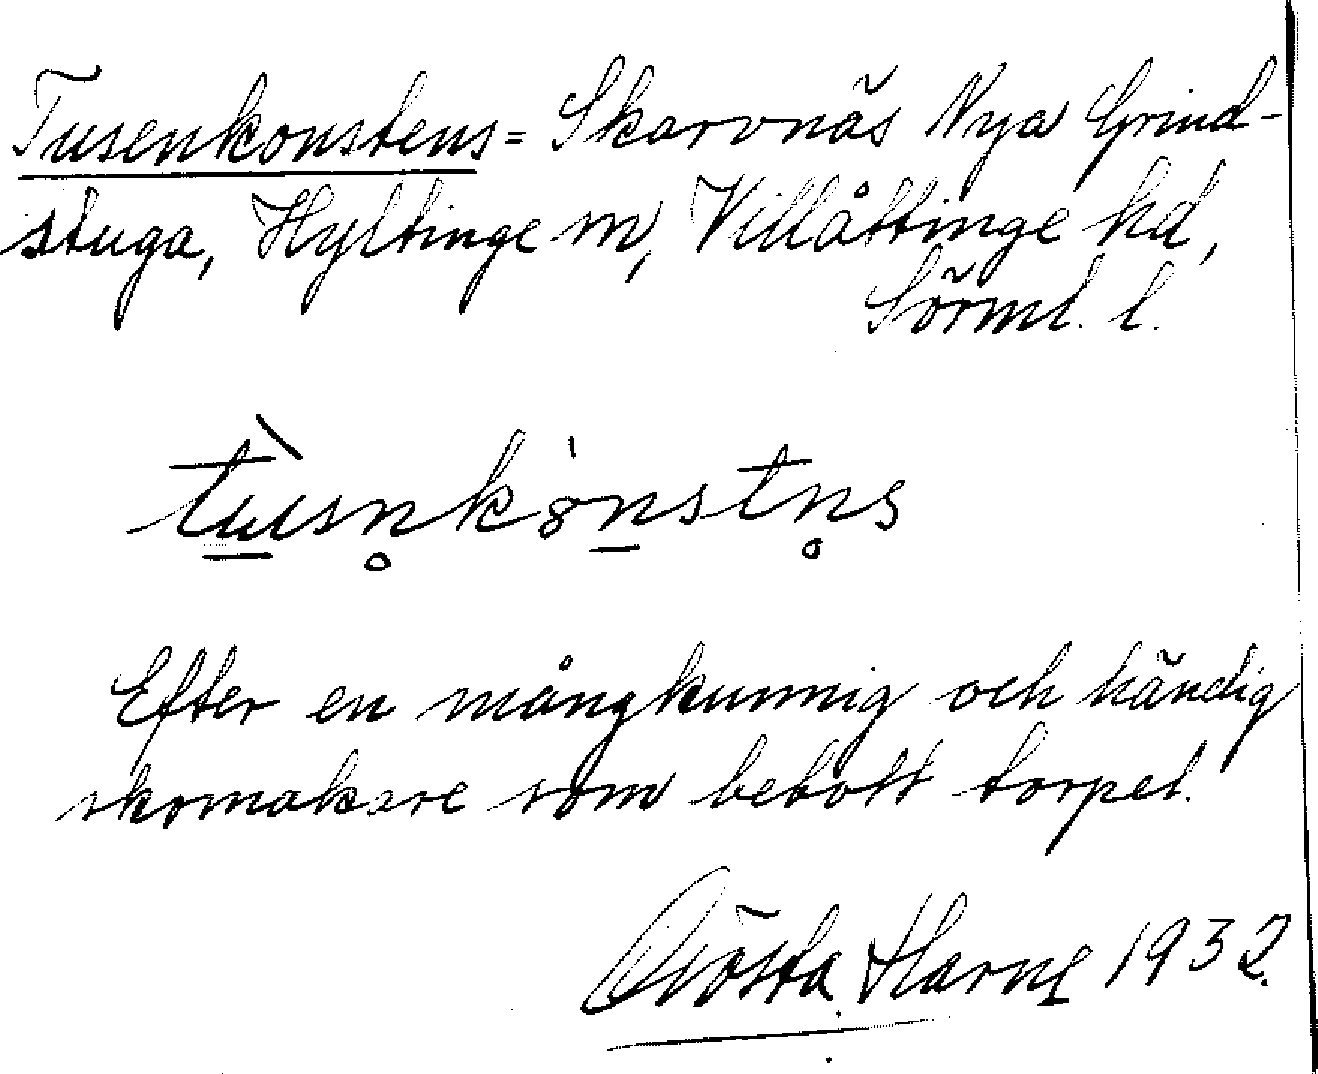 Tusenkonstens = Skarvnäs Nya Grind-
stuga, Hyltinge sn, Villåttinge hd,
Sörml. l.
tùsn̥kȯnstn̥s
Efter en mångkunnig och händig
skomakare som bebott torpet.
Gösta Harne 1932.